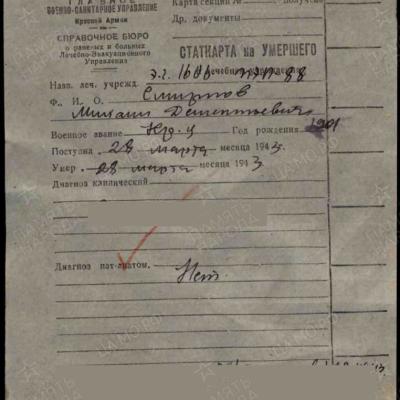 ГЛАВНОЕ
ВОЕННО-САНИТАРНОЕ УПРАВЛЕНИЕ
Красной Армии
СПРАВОЧНОЕ БЮРО
о раненых и больных
Лечебно-Эвакуационного
Управления
Карта секции № получено
Др. документы
СТАТКАРТА на УМЕРШЕГО
Назв. леч. учрежд. э.г. 1686
Ф., И., О. Смирнов
Михаил Дементьевич
Военное звание Кр-ц Год рождения 1901
Поступил 28 марта месяца 1943
Умер 28 марта месяца 1943
Диагноз клинический
Диагноз пат-анатом. Нет.